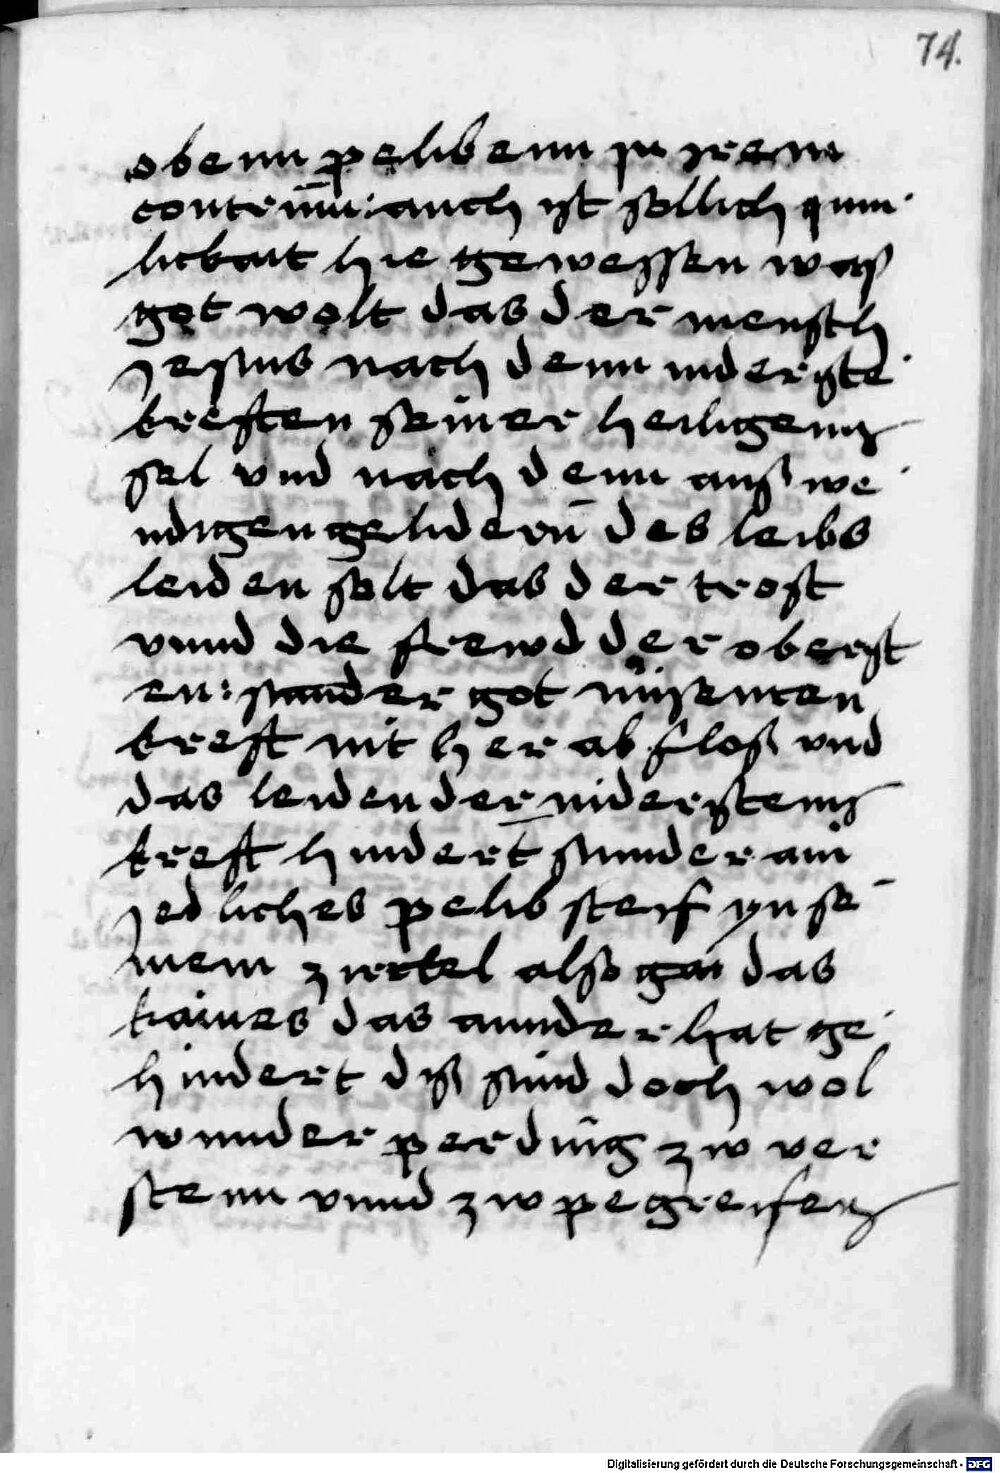 74.
obenn pelibenn in irem
contrum: auch ist sollich qum
lickait hie gewessen was
got wolt das der mensch
jesus nach denn underste
kreften seiner heiligenn
sel vnd nach denn ausswe
ndigen gelidern des leibs
leiden solt das der trost
vnnd die frewd der oberst
en: sunder got
kreft nit her ab floss vnd
das leiden der niderstenn
kreft hindert sunder ain
jedliches pelib steif yn se
inem zirckel also gar das
kaines das annder hat ge
hindert diss sind doch wol
wunder perding zw ver
stenn vnnd zw pegreifenn
Digitalisierung gefördert durch die Deutsche Forschungsgemeinschaft - DFG